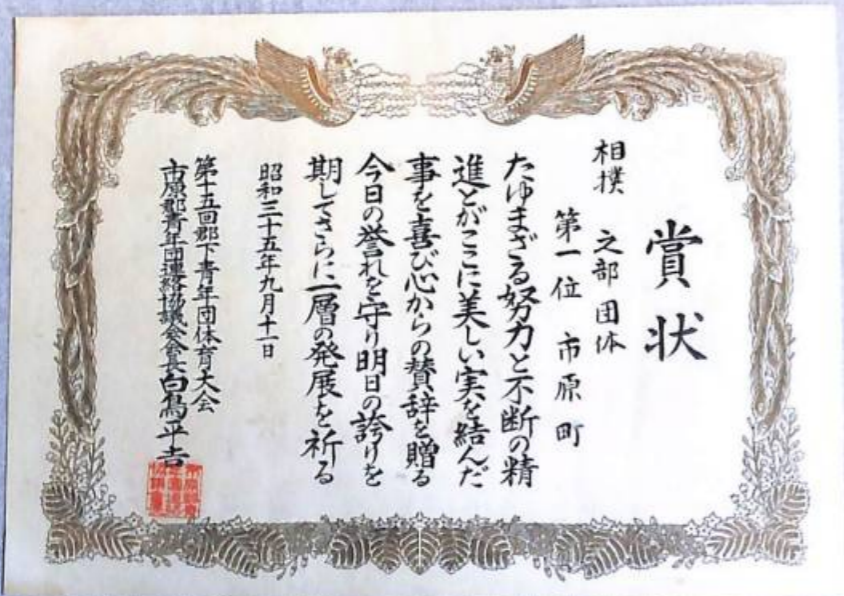 賞状
相撲 之部団体
第一位 市原町
たゆまざる努力と不断の精
進とがここに美しい実を結んだ
事を喜び心からの賛辞を贈る
今日の誉れを守り明日の誇りを
期してさらに一層の発展を祈る
昭和三十五年九月十一日
第十五回郡下青年団体育大会
市原郡青年団連絡協議会会長白鳥平吉